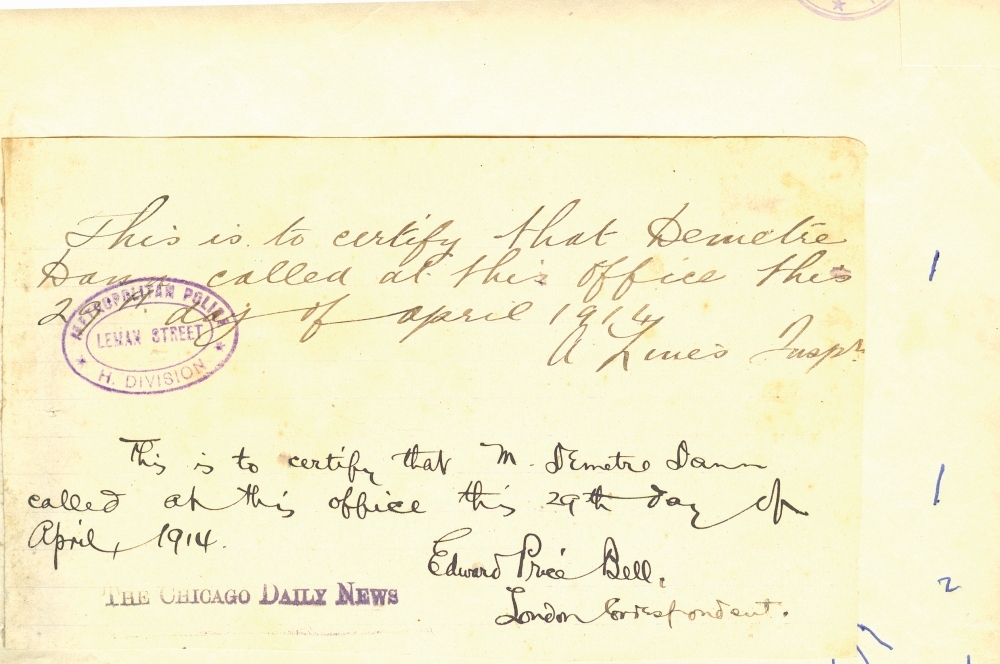 This is to certify that Demetre
Dann called at this office this
day of april 1914
A Lines Inspr
METROPOLITAN POLICE
LEMAN STREET
H. DIVISION
This is to certify that M. Demetre Dann
called at this office this 29th day of
April, 1914.
Edward Price Bell.
London Correspondent.
THE CHICAGO DAILY NEWS
1
1
2